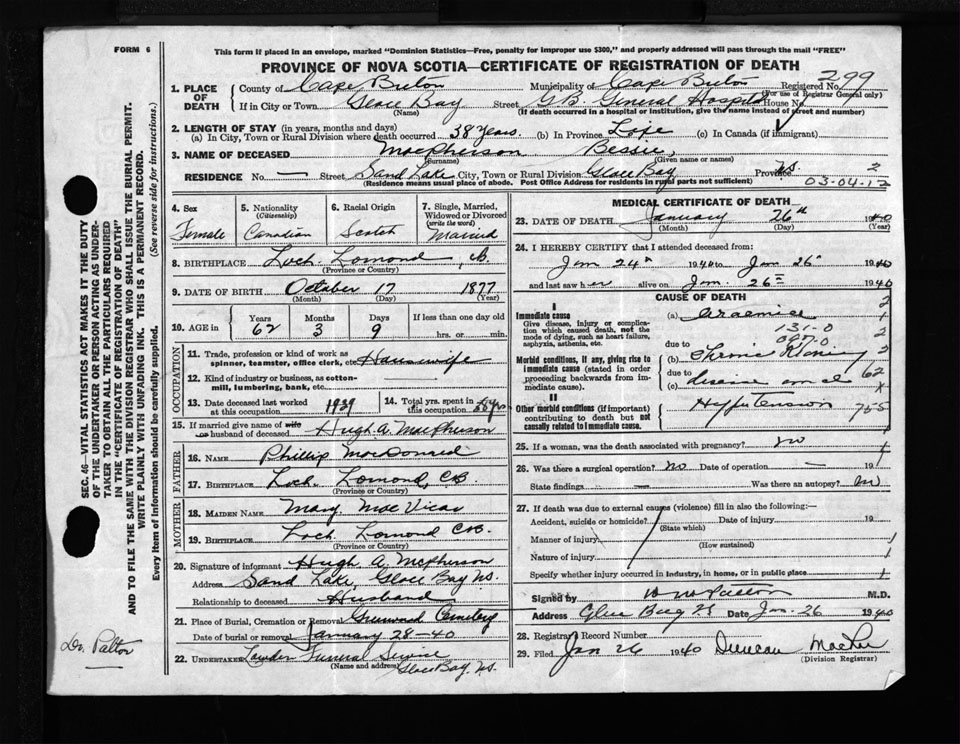 FORM 6
This form if placed in an envelope, marked "Dominion Statistics—Free, penalty for improper use $300," and properly addressed will pass through the mail "FREE"
PROVINCE OF NOVA SCOTIA—CERTIFICATE OF REGISTRATION OF DEATH
SEC. 46—VITAL STATISTICS ACT MAKES IT THE DUTY
OF THE UNDERTAKER OR PERSON ACTING AS UNDER-
TAKER TO OBTAIN ALL THE PARTICULARS REQUIRED
IN THE "CERTIFICATE OF REGISTRATION OF DEATH"
AND TO FILE THE SAME WITH THE DIVISION REGISTRAR WHO SHALL ISSUE THE BURIAL PERMIT.
WRITE PLAINLY WITH UNFADING INK. THIS IS A PERMANENT RECORD.
Every item of information should be carefully supplied. (See reverse side for instructions.)
Dr. Patton
1. PLACE OF DEATH County of Cape Breton Municipality of Cape Breton Registered No. 299
(For use of Registrar General only)
If in City or Town Glace Bay Street G.B. General Hospital House No.
(Name) (If death occurred in a hospital or institution, give the name instead of street and number)
2. LENGTH OF STAY (in years, months and days)
(a) In City, Town or Rural Division where death occurred 38 years. (b) In Province Life (c) In Canada (if immigrant)
3. NAME OF DECEASED MacPherson Bessie,
(Surname) (Given name or names)
RESIDENCE No. — Street Sand Lake City, Town or Rural Division Glace Bay Province N.S. 2
(Residence means usual place of abode. Post Office Address for residents in rural parts not sufficient) 03-04-12
4. Sex Female
5. Nationality (Citizenship) Canadian
6. Racial Origin Scotch
7. Single, Married, Widowed or Divorced (write the word) Married
8. BIRTHPLACE Loch Lomond, C.B.
(Province or Country)
9. DATE OF BIRTH October 17 1877
(Month) (Day) (Year)
10. AGE in Years 62 Months 3 Days 9 If less than one day old hrs. or min.
OCCUPATION
11. Trade, profession or kind of work as spinner, teamster, office clerk, etc. Housewife
12. Kind of industry or business, as cotton-mill, lumbering, bank, etc.
13. Date deceased last worked at this occupation 1939 14. Total yrs. spent in this occupation
15. If married give name of wife or husband of deceased Hugh A. MacPherson
FATHER
16. NAME Phillip MacDonald
17. BIRTHPLACE Loch Lomond, C.B.
(Province or Country)
MOTHER
18. MAIDEN NAME Mary MacVicar
19. BIRTHPLACE Loch Lomond C.B.
(Province or Country)
20. Signature of informant Hugh A McPherson
Address Sand Lake, Glace Bay N.S.
Relationship to deceased Husband
21. Place of Burial, Cremation or Removal Greenwood Cemetery
Date of burial or removal January 28-40
22. UNDERTAKER Lawden Funeral Service
(Name and address) Glace Bay, N.S.
MEDICAL CERTIFICATE OF DEATH
23. DATE OF DEATH January 26th 1940
(Month) (Day) (Year)
24. I HEREBY CERTIFY that I attended deceased from:
Jan 24th 1940 to Jan 26th 1940
and last saw her alive on Jan. 26th 1940
CAUSE OF DEATH
I
Immediate cause (a) Uraemia 2
Give disease, injury or complication which caused death, not the mode of dying, such as heart failure, asphyxia, asthenia, etc.
131-0 2
due to
Morbid conditions, if any, giving rise to immediate cause (stated in order proceeding backwards from immediate cause). (b) Chronic Kidney 2
due to 62
(c) disease and
II
Other morbid conditions (if important) contributing to death but not causally related to immediate cause. Hypertension 755
25. If a woman, was the death associated with pregnancy? no 1
26. Was there a surgical operation? No Date of operation — 19
State findings — Was there an autopsy? no
27. If death was due to external causes (violence) fill in also the following:—
Accident, suicide or homicide? Date of injury 19
(State which)
Manner of injury 1
(How sustained)
Nature of injury 1
Specify whether injury occurred in industry, in home, or in public place 1
Signed by M.D.
Address Glace Bay N.S. Date Jan. 26 1940
28. Registry Record Number
29. Filed Jan 26 1940 Duncan
(Division Registrar)